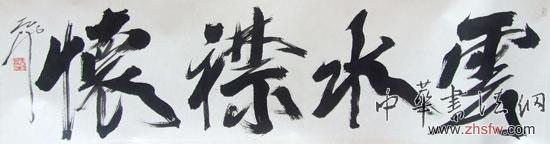 雲水襟懷
中華書法網
www.zhsfw.com